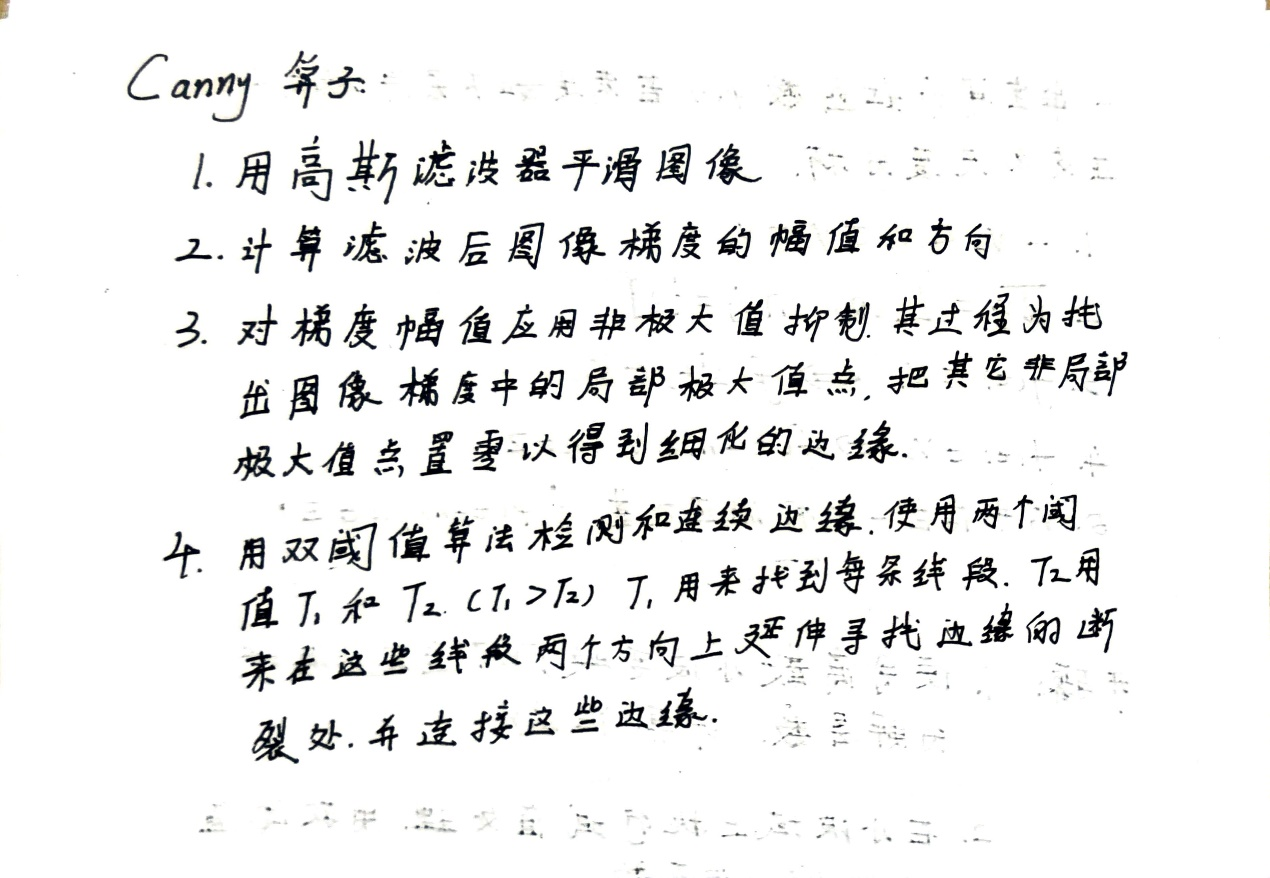 Canny 算子:
1. 用高斯滤波器平滑图像
2. 计算滤波后图像梯度的幅值和方向
3. 对梯度幅值应用非极大值抑制.其过程为找
出图像梯度中的局部极大值点,把其它非局部
极大值点置零以得到细化的边缘.
4. 用双阈值算法检测和连续边缘.使用两个阈
值 T₁ 和 T₂ (T₁>T₂) T₁用来找到每条线段. T₂用
来在这些线段两个方向上延伸寻找边缘的断
裂处.并连接这些边缘.